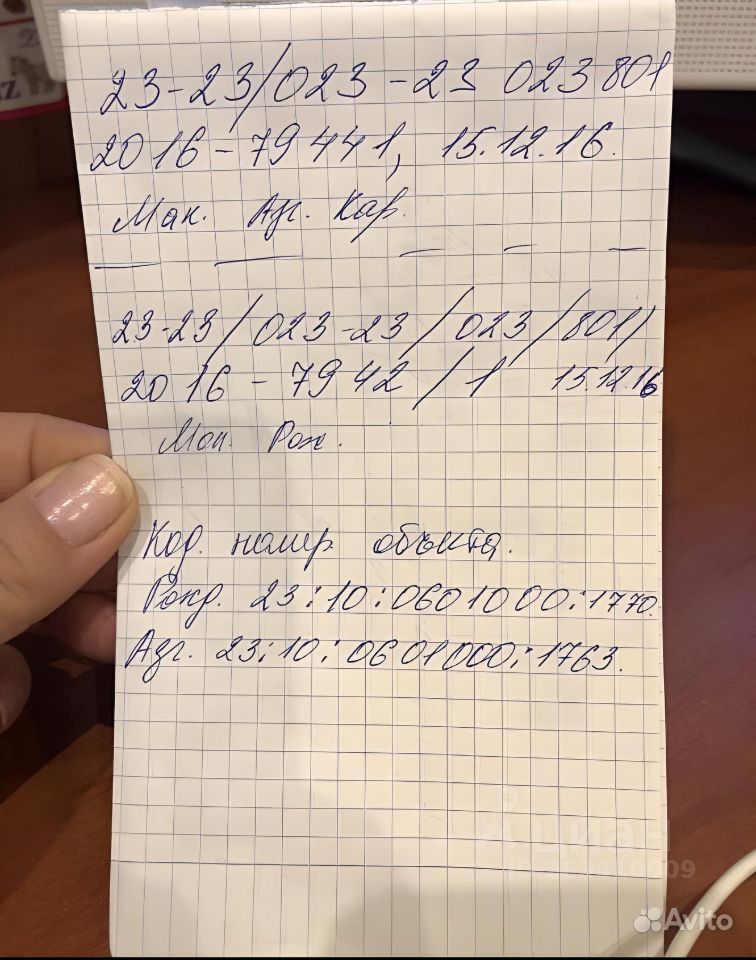 23-23/023-23 023 801
2016-79441, 15.12.16.
Мак. Аг. Кар.
23-23/023-23/023/801/
2016-7942/1 15.12.16
Мак. Рож.
Код. номер объекта.
Рожд. 23:10:0601000:1770.
Азг. 23:10:0601000:1763.
Циан
Avito